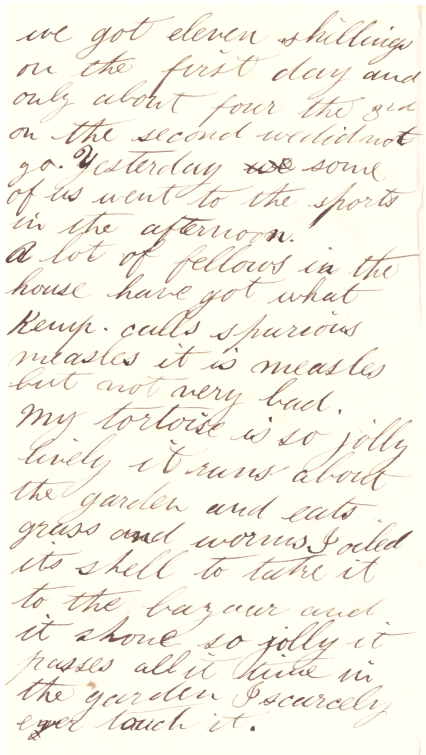 we got eleven shillings
on the first day and
only about four the 3rd
on the second we did not
go. Yesterday we some
of us went to the sports
in the afternoon.
A lot of fellows in the
house have got what
Kemp. calls spurious
measles it is measles
but not very bad.
My tortoise is so jolly
lively it runs about
the garden and eats
grass and worms I oiled
its shell to take it
to the bazaar and
it shone so jolly it
passes all it time in
the garden I scarcely
ever touch it.